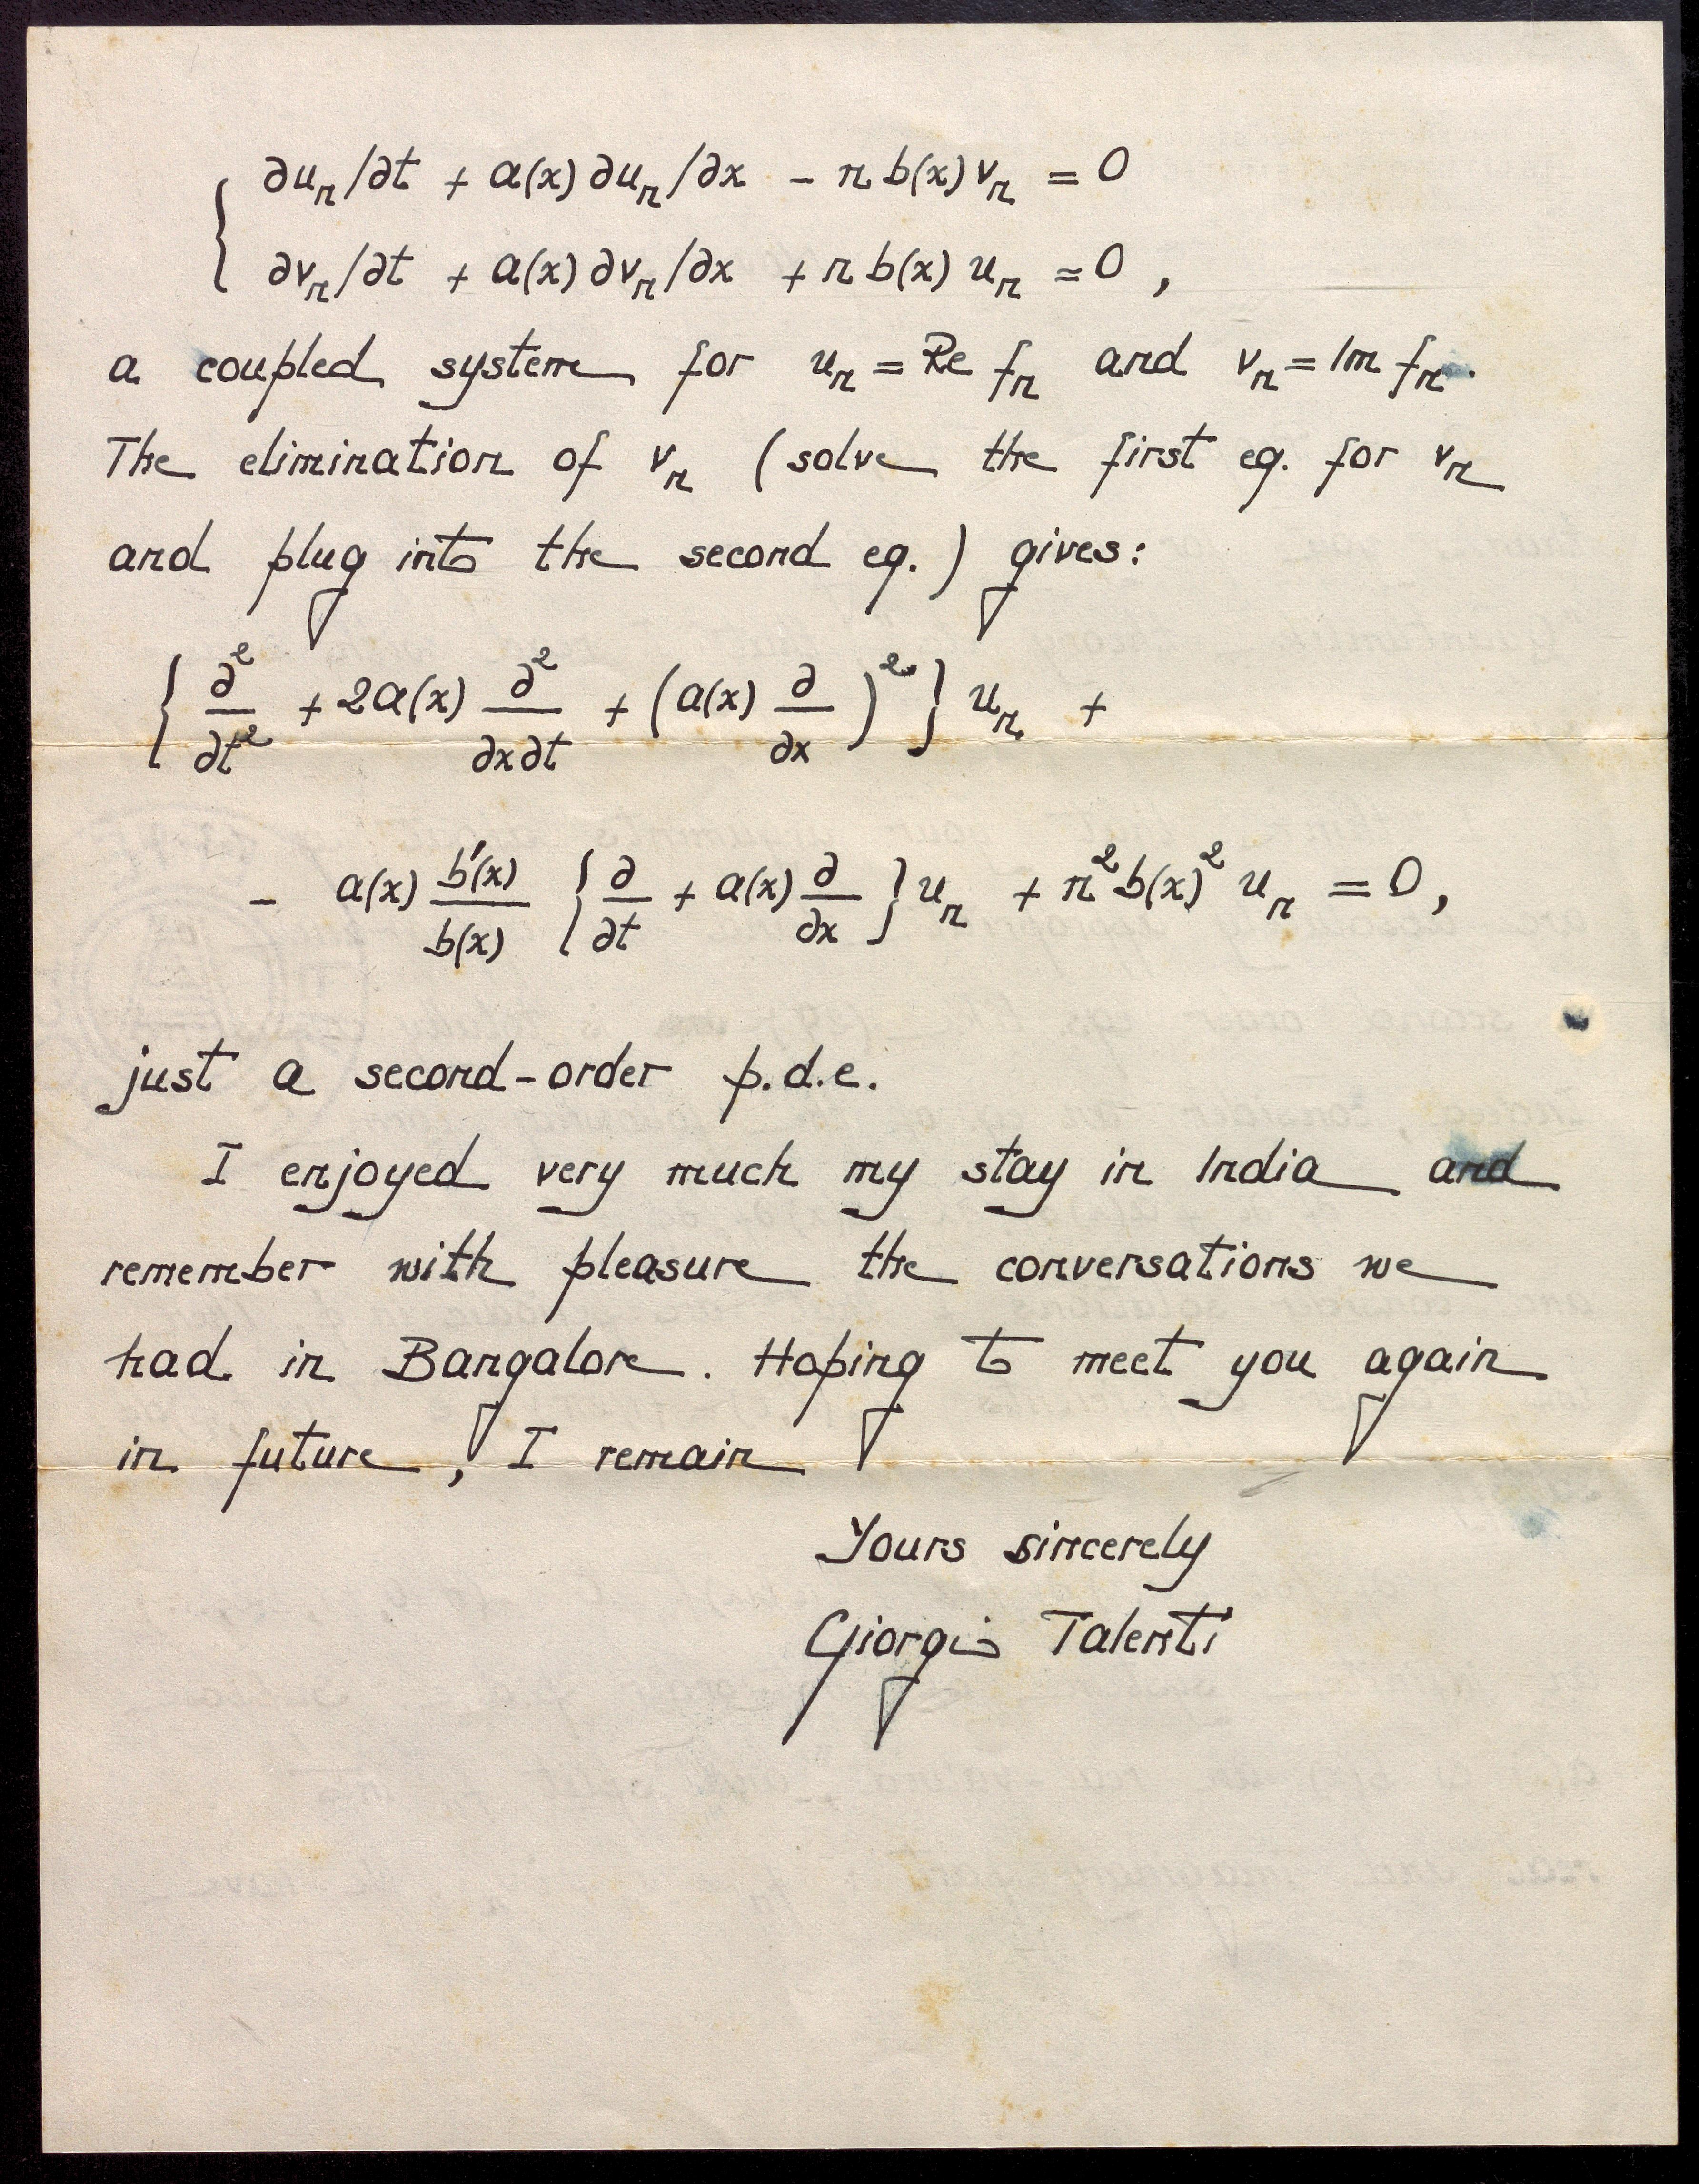 ∂uₙ/∂t + a(x) ∂uₙ/∂x - n b(x) vₙ = 0
∂vₙ/∂t + a(x) ∂vₙ/∂x + n b(x) uₙ = 0 ,
a coupled system for uₙ = Re fₙ and vₙ = Im fₙ.
The elimination of vₙ (solve the first eq. for vₙ
and plug into the second eq.) gives:
{ ∂²/∂t² + 2a(x) ∂²/∂x∂t + (a(x) ∂/∂x)² } uₙ +
- a(x) b'(x)/b(x) { ∂/∂t + a(x) ∂/∂x } uₙ + n² b(x)² uₙ = 0 ,
just a second-order p.d.e.
I enjoyed very much my stay in India and
remember with pleasure the conversations we
had in Bangalore. Hoping to meet you again
in future, I remain
Yours sincerely
Giorgio Talenti